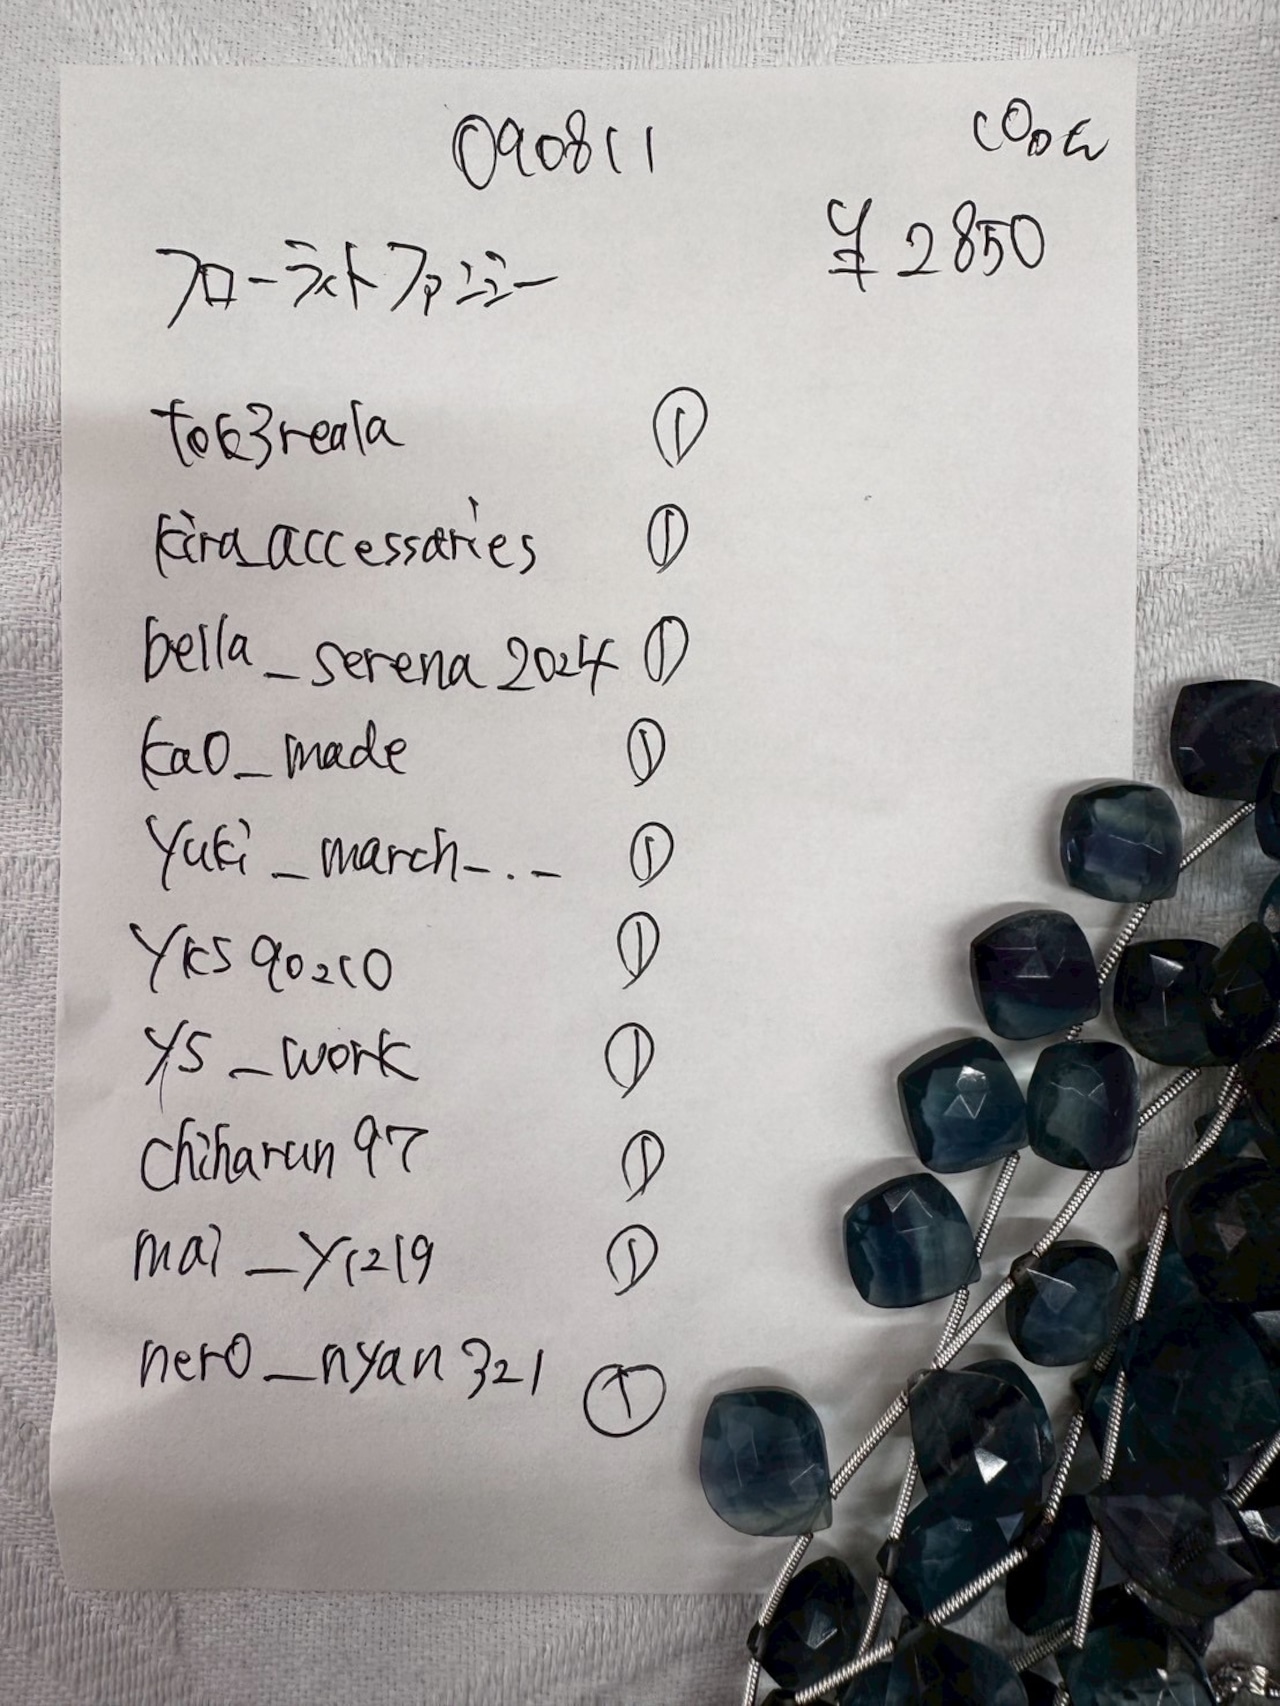 090811
¥2850
フローライトファンシー
tok3reala
kira_accessaries ①
bella_serena2024 ①
kao_made ①
yuki_march_._ ①
yks90210 ①
ys_work ①
chiharun97 ①
mai_y1219 ①
nero_nyan321 ①